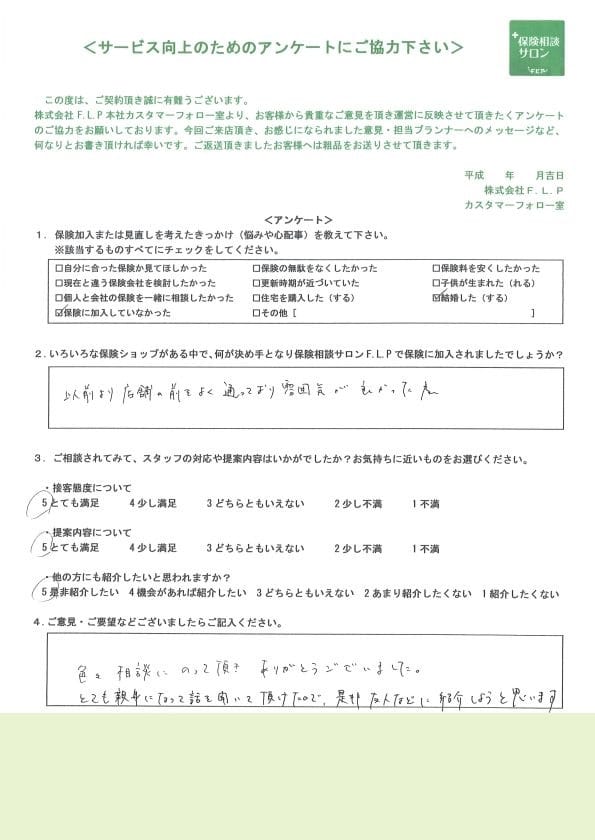 ＜サービス向上のためのアンケートにご協力下さい＞
+保険相談
サロン
F.L.P
この度は、ご契約頂き誠に有難うございます。
株式会社F.L.P本社カスタマーフォロー室より、お客様から貴重なご意見を頂き運営に反映させて頂きたくアンケート
のご協力をお願いしております。今回ご来店頂き、お感じになられました意見・担当プランナーへのメッセージなど、
何なりとお書き頂ければ幸いです。ご返送頂きましたお客様へは粗品をお送りさせて頂きます。
平成　　年　　月吉日
株式会社F.L.P
カスタマーフォロー室
＜アンケート＞
1．保険加入または見直しを考えたきっかけ（悩みや心配事）を教えて下さい。
※該当するものすべてにチェックをしてください。
□自分に合った保険か見てほしかった　□保険の無駄をなくしたかった　□保険料を安くしたかった
□現在と違う保険会社を検討したかった　□更新時期が近づいていた　□子供が生まれた（れる）
□個人と会社の保険を一緒に相談したかった　□住宅を購入した（する）　☑結婚した（する）
☑保険に加入していなかった　□その他［　　　　］
2．いろいろな保険ショップがある中で、何が決め手となり保険相談サロンF.L.Pで保険に加入されましたでしょうか？
以前より店舗の前をよく通っており雰囲気が良かった為
3．ご相談されてみて、スタッフの対応や提案内容はいかがでしたか？お気持ちに近いものをお選びください。
・接客態度について
5とても満足　4少し満足　3どちらともいえない　2少し不満　1不満
・提案内容について
5とても満足　4少し満足　3どちらともいえない　2少し不満　1不満
・他の方にも紹介したいと思われますか？
5是非紹介したい　4機会があれば紹介したい　3どちらともいえない　2あまり紹介したくない　1紹介したくない
4．ご意見・ご要望などございましたらご記入ください。
色々相談にのって頂きありがとうございました。
とても親身になって話を聞いて頂けたので、是非友人などに紹介しようと思います